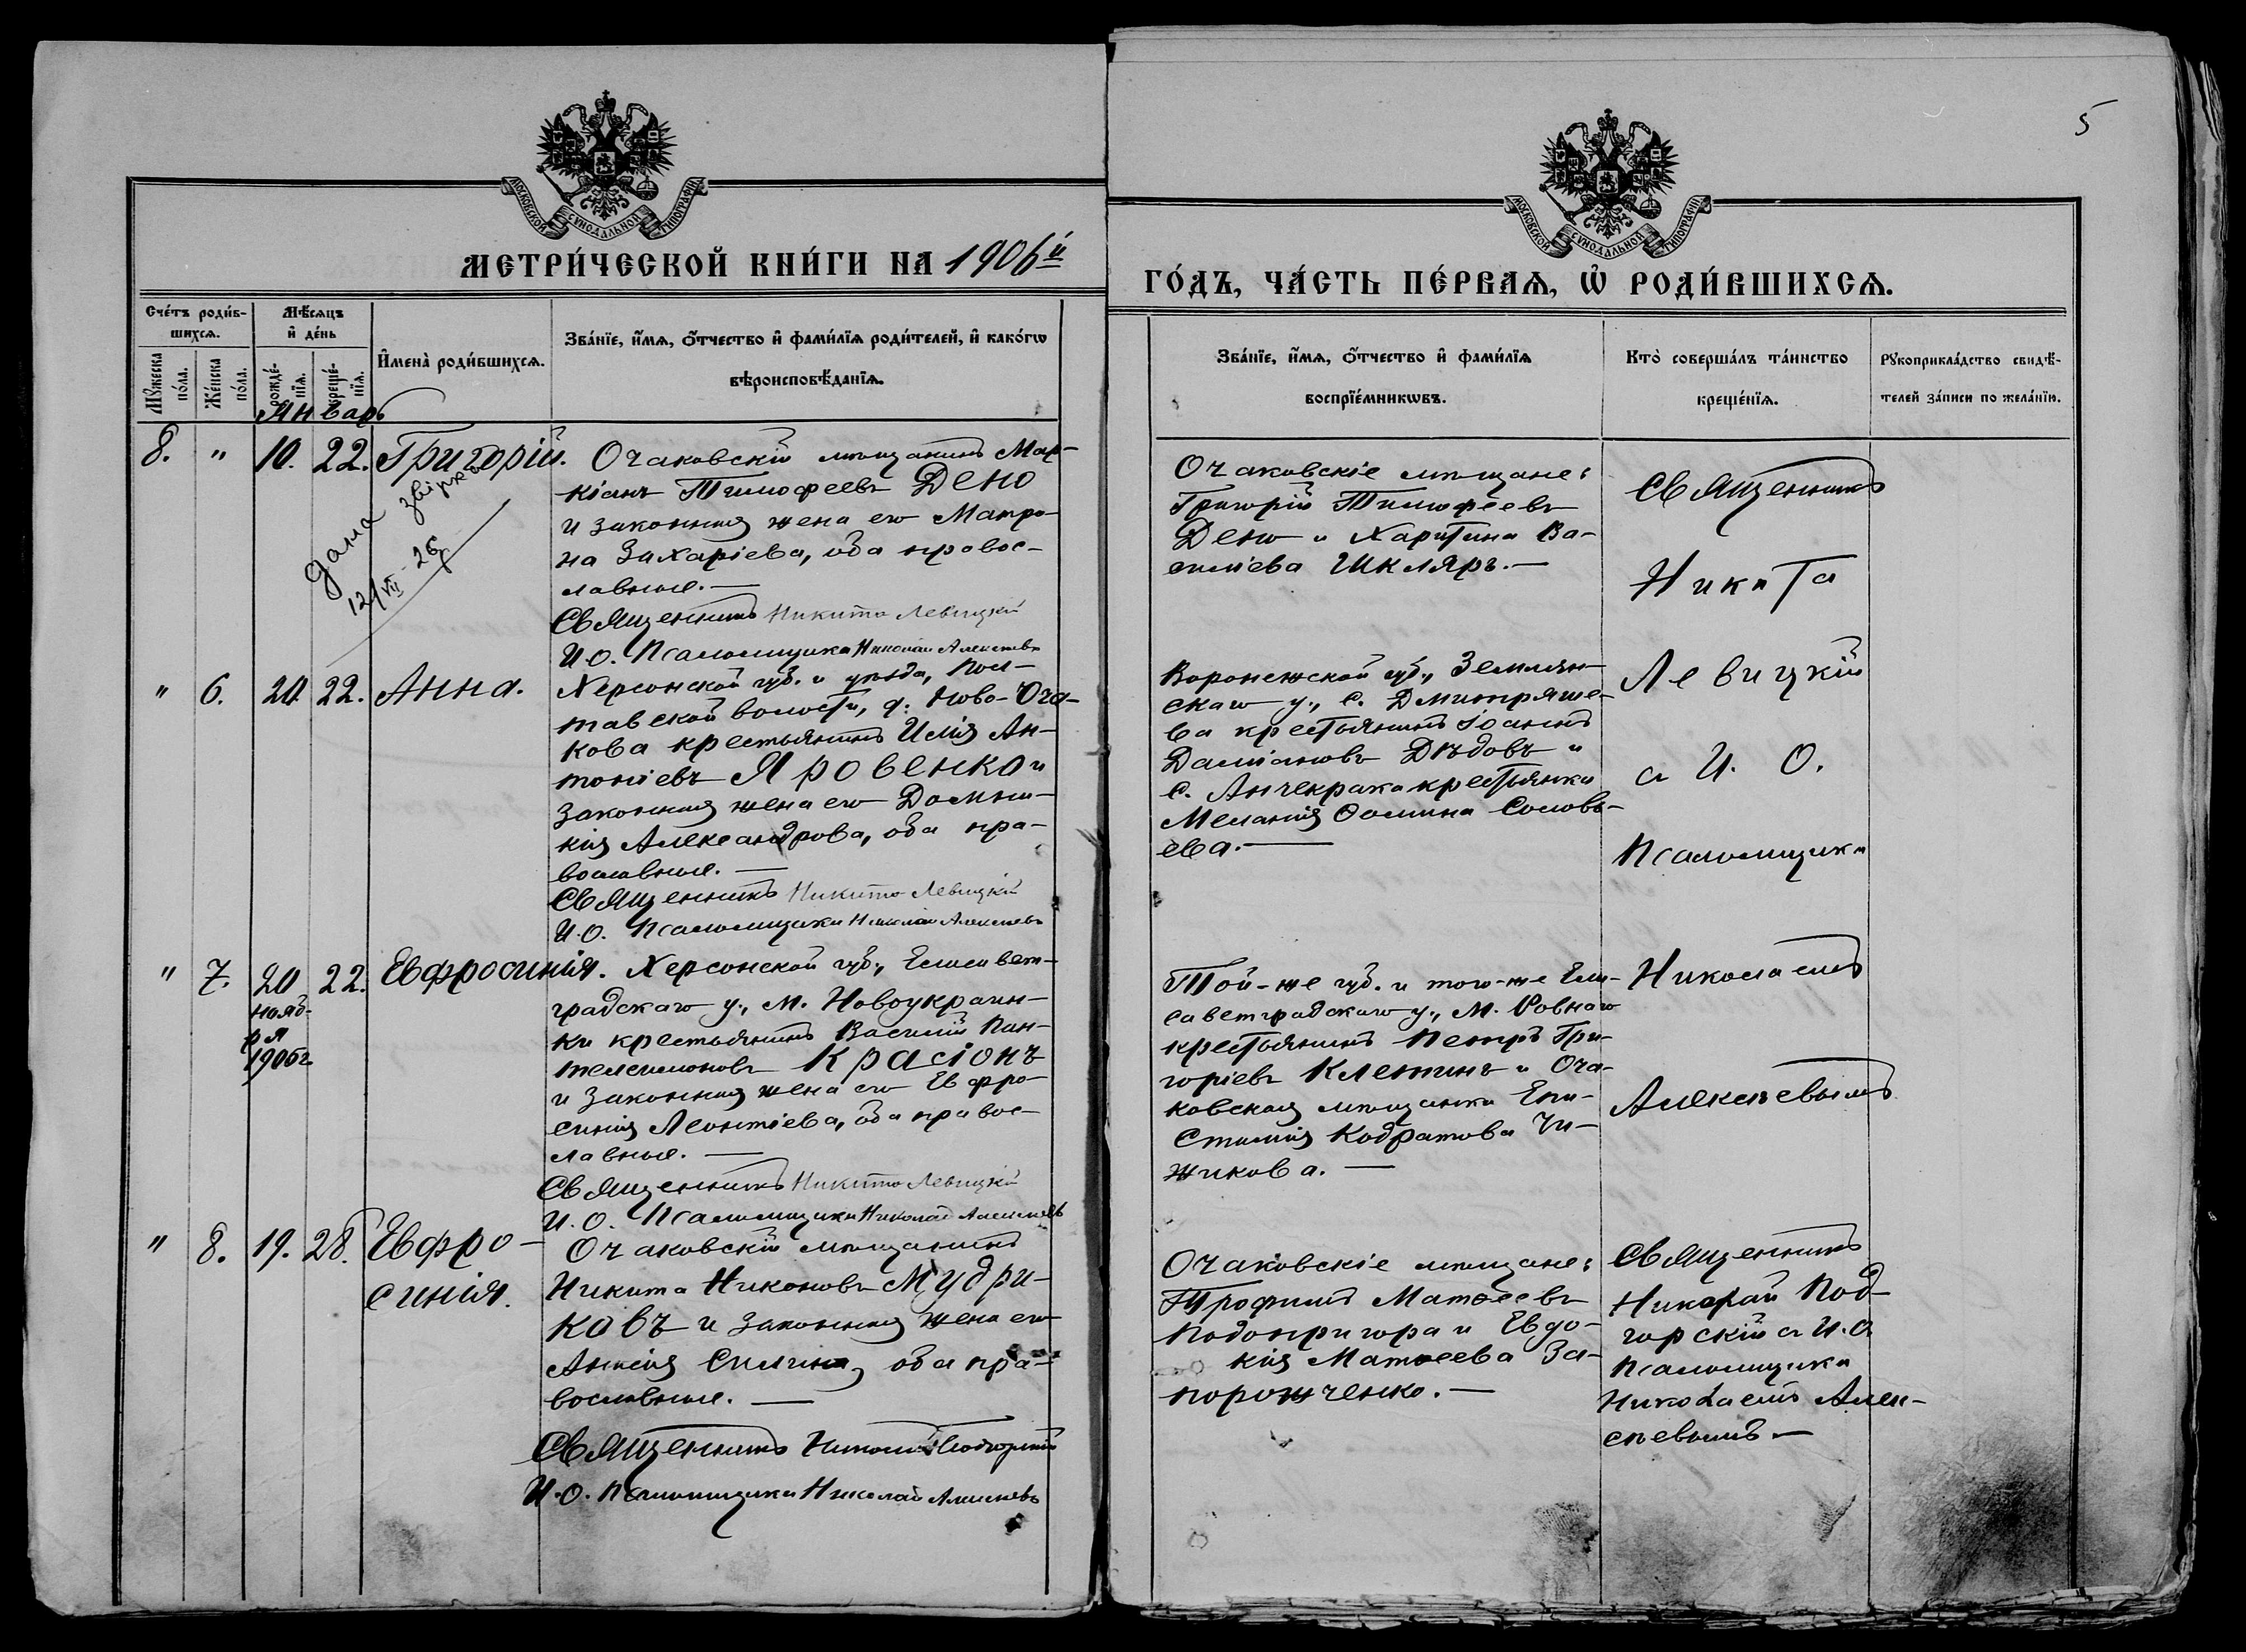 5
МОСКОВСКОЙ СѴНОДАЛЬНОЙ ТИПОГРАФІИ
МОСКОВСКОЙ СѴНОДАЛЬНОЙ ТИПОГРАФІИ
МЕТРИ́ЧЕСКОЙ КНИ́ГИ НА 1906й
ГО́ДЪ, ЧА́СТЬ ПЕ́РВАѦ, Ѡ҆ РОДИ́ВШИХСѦ.
Сче́тъ роди́в-
шихсѧ.
Мꙋ́жеска по́ла.
Же́нска по́ла.
Мѣ́сѧцъ
и҆ де́нь
рожде́-
нїѧ.
креще́-
нїѧ.
И҆мена̀ роди́вшихсѧ.
Зва́нїе, и҆́мѧ, ѻ҆́тчество и҆ фами́лїѧ роди́телей, и҆ како́гѡ
вѣроисповѣ́данїѧ.
Зва́нїе, и҆́мѧ, ѻ҆́тчество и҆ фами́лїѧ
воспрїе́мникѡвъ.
Кто̀ соверша́лъ та́инство
креще́нїѧ.
Рꙋкоприкла́дство свидѣ́-
телей за́писи по жела́нїю.
Январь
8. " 10. 22. Григорій.
дана звірка
12/VII - 26
Очаковскій мѣщанинъ Мар-
кіанъ Тимофеевъ Дено
и законная жена его Матро-
на Захаріева, оба правос-
лавные. —
Священникъ Никита Левицкій
И.О. Псаломщика Николай Алексѣевъ
Очаковскіе мѣщане:
Григорій Тимофеевъ
Дено и Харитина Ва-
силіева Шкляръ. —
Священникъ
Никита
Левицкій
с И. О.
Псаломщика
Николаемъ
Алексѣевымъ
" 6. 20. 22. Анна.
Херсонской губ. и уѣзда, Пол-
тавской волости, д. Ново-Оча-
кова крестьянинъ Илія Ан-
тоніевъ Яровенко и
законная жена его Домни-
кія Александрова, оба пра-
вославные. —
Священникъ Никита Левицкій
И.О. Псаломщика Николай Алексѣевъ
Воронежской губ., Землян-
скаго у., с. Дмитряше-
ва крестьянинъ Іоаннъ
Даміановъ Дѣдовъ и
с. Анчекрака крестьянка
Меланія Ѳомина Соловь-
ева. —
" 7. 20 22. Евфросинія.
нояб-
ря
1905 г.
Херсонской губ., Елисавет-
градскаго у., м. Новоукраин-
ки крестьянинъ Василій Пан-
телеимоновъ Красіонъ
и законная жена его Евфро-
синія Леонтіева, оба правос-
лавные. —
Священникъ Никита Левицкій
И.О. Псаломщика Николай Алексѣевъ
Той-же губ. и того-же Ели-
саветградскаго у., м. Ровнаго
крестьянинъ Петръ Гри-
горіевъ Клетинъ и Оча-
ковская мѣщанка Епи-
стимія Кодратова Чи-
жикова. —
" 8. 19. 28. Евфро-
синія.
Очаковскій мѣщанинъ
Никита Никоновъ Мудри-
ковъ и законная жена его
Анисія Силина, оба пра-
вославные. —
Священникъ Николай Подгорскій
И.О. Псаломщика Николай Алексѣевъ
Очаковскіе мѣщане:
Трофимъ Матѳеевъ
Подопригора и Евдо-
кія Матѳеева За-
порожченко. —
Священникъ
Николай Под-
горскій с И.О.
Псаломщика
Николаемъ Алек-
сѣевымъ —